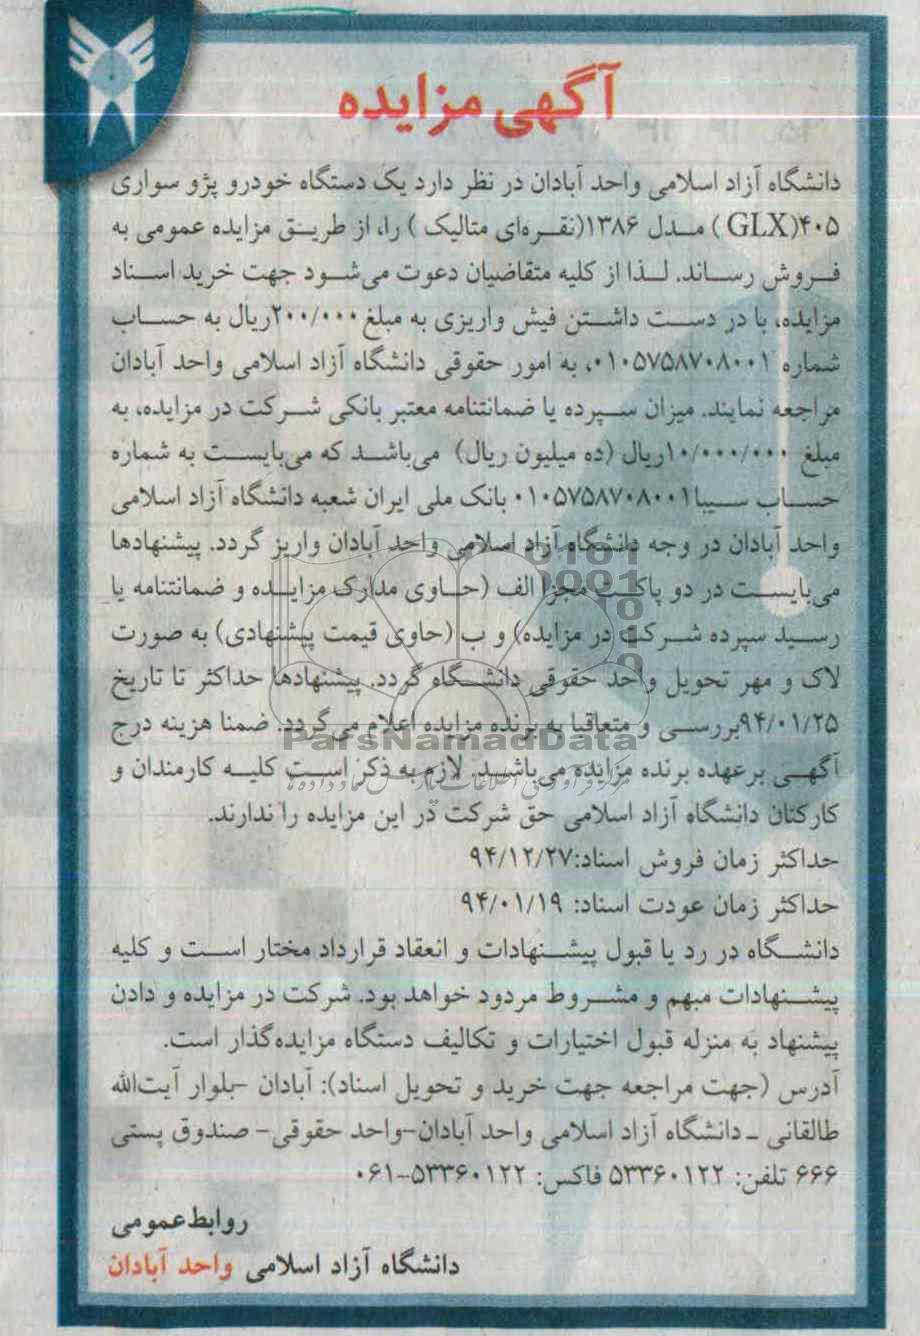 آگهی مزایده
دانشگاه آزاد اسلامی واحد آبادان در نظر دارد یک دستگاه خودرو پژو سواری
۴۰۵(GLX ) مـدل ۱۳۸۶(نقـره‌ای متالیک ) را، از طریـق مزایده عمومی به
فـروش رسـاند. لـذا از کلیه متقاضیان دعوت می‌شـود جهت خرید اسـناد
مزایده، با در دسـت داشـتن فیش واریزی به مبلغ ۲۰۰/۰۰۰ریال به حسـاب
شماره ۰۱۰۵۷۵۸۷۰۸۰۰۱، به امور حقوقی دانشگاه آزاد اسلامی واحد آبادان
مراجعه نمایند. میزان سـپرده یا ضمانتنامه معتبر بانکی شـرکت در مزایده، به
مبلغ ۱۰/۰۰۰/۰۰۰ریال (ده میلیون ریال) می‌باشـد که می‌بایسـت به شماره
حسـاب سـیبا۰۱۰۵۷۵۸۷۰۸۰۰۱ بانک ملی ایران شعبه دانشگاه آزاد اسلامی
واحد آبادان در وجه دانشگاه آزاد اسلامی واحد آبادان واریز گردد. پیشنهادها
می‌بایسـت در دو پاکـت مجزا الف (حـاوی مدارک مزایـده و ضمانتنامه یا
رسـید سپرده شـرکت در مزایده) و ب (حاوی قیمت پیشنهادی) به صورت
لاک و مهر تحویل واحد حقوقی دانشـگاه گردد. پیشنهادها حداکثر تا تاریخ
۹۴/۰۱/۲۵بررسـی و متعاقبا به برنده مزایده اعلام می‌گردد. ضمنا هزینه درج
ParsNamadData
آگهـی برعهده برنده مزایده می‌باشـد. لازم به ذکر اسـت کلیـه کارمندان و
کارکنان دانشگاه آزاد اسلامی حق شرکت در این مزایده را ندارند.
حداکثر زمان فروش اسناد:۹۴/۱۲/۲۷
حداکثر زمان عودت اسناد: ۹۴/۰۱/۱۹
دانشـگاه در رد یا قبول پیشـنهادات و انعقاد قرارداد مختار اسـت و کلیه
پیشـنهادات مبهم و مشـروط مردود خواهد بود. شرکت در مزایده و دادن
پیشنهاد به منزله قبول اختیارات و تکالیف دستگاه مزایده‌گذار است.
آدرس (جهت مراجعه جهت خرید و تحویل اسناد): آبادان -بلوار آیت‌الله
طالقانی - دانشگاه آزاد اسلامی واحد آبادان-واحد حقوقی- صندوق پستی
۶۶۶ تلفن: ۵۳۳۶۰۱۲۲ فاکس: ۵۳۳۶۰۱۲۲-۰۶۱
روابط‌عمومی
دانشگاه آزاد اسلامی واحد آبادان